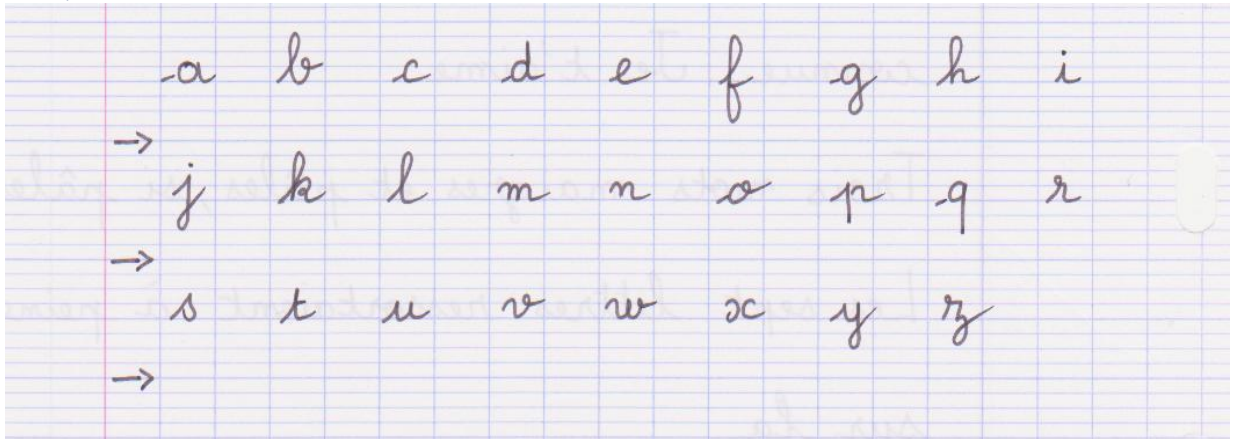 a b c d e f g h i
→
j k l m n o p q r
→
s t u v w x y z
→